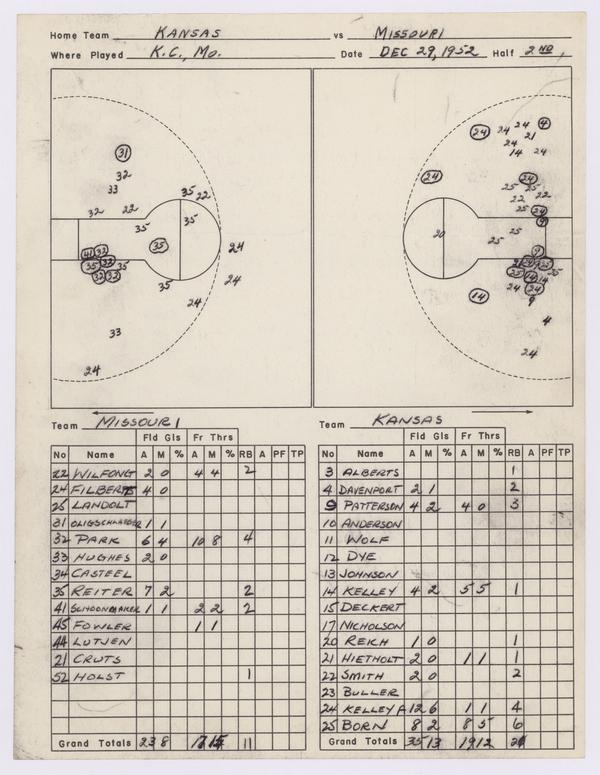 Home Team KANSAS vs MISSOURI
Where Played K.C., Mo. Date DEC 29, 1952 Half 2ND
31
32
33
32 22
35 22
35
35
35
41 32
35 33 35
32 32
35
24
24
24
33
24
24 24 24 4
21
24
14 24
24
24
25 25
22 22
25 24
9
20 25 25
9
21 24 25
25 14 14 25
24 24
14 9
4
24
Team MISSOURI
Fld Gls Fr Thrs
No Name A M % A M % RB A PF TP
22 WILFONG 2 0 4 4 2
24 FILBERT 4 0
25 LANDOLT
31 OLIGSCHLAEGER 1 1
32 PARK 6 4 10 8 4
33 HUGHES 2 0
34 CASTEEL
35 REITER 7 2 2
41 SCHOONMAKER 1 1 2 2 2
45 FOWLER 1 1
44 LUTJEN
21 CRUTS
52 HOLST 1
Grand Totals 23 8 17 15 11
Team KANSAS
Fld Gls Fr Thrs
No Name A M % A M % RB A PF TP
3 ALBERTS 1
4 DAVENPORT 2 1 2
9 PATTERSON 4 2 4 0 3
10 ANDERSON
11 WOLF
12 DYE
13 JOHNSON
14 KELLEY 4 2 5 5 1
15 DECKERT
17 NICHOLSON
20 REICH 1 0 1
21 HIETHOLT 2 0 1 1 1
22 SMITH 2 0 2
23 BULLER
24 KELLEY A 12 6 1 1 4
25 BORN 8 2 8 5 6
Grand Totals 35 13 19 12